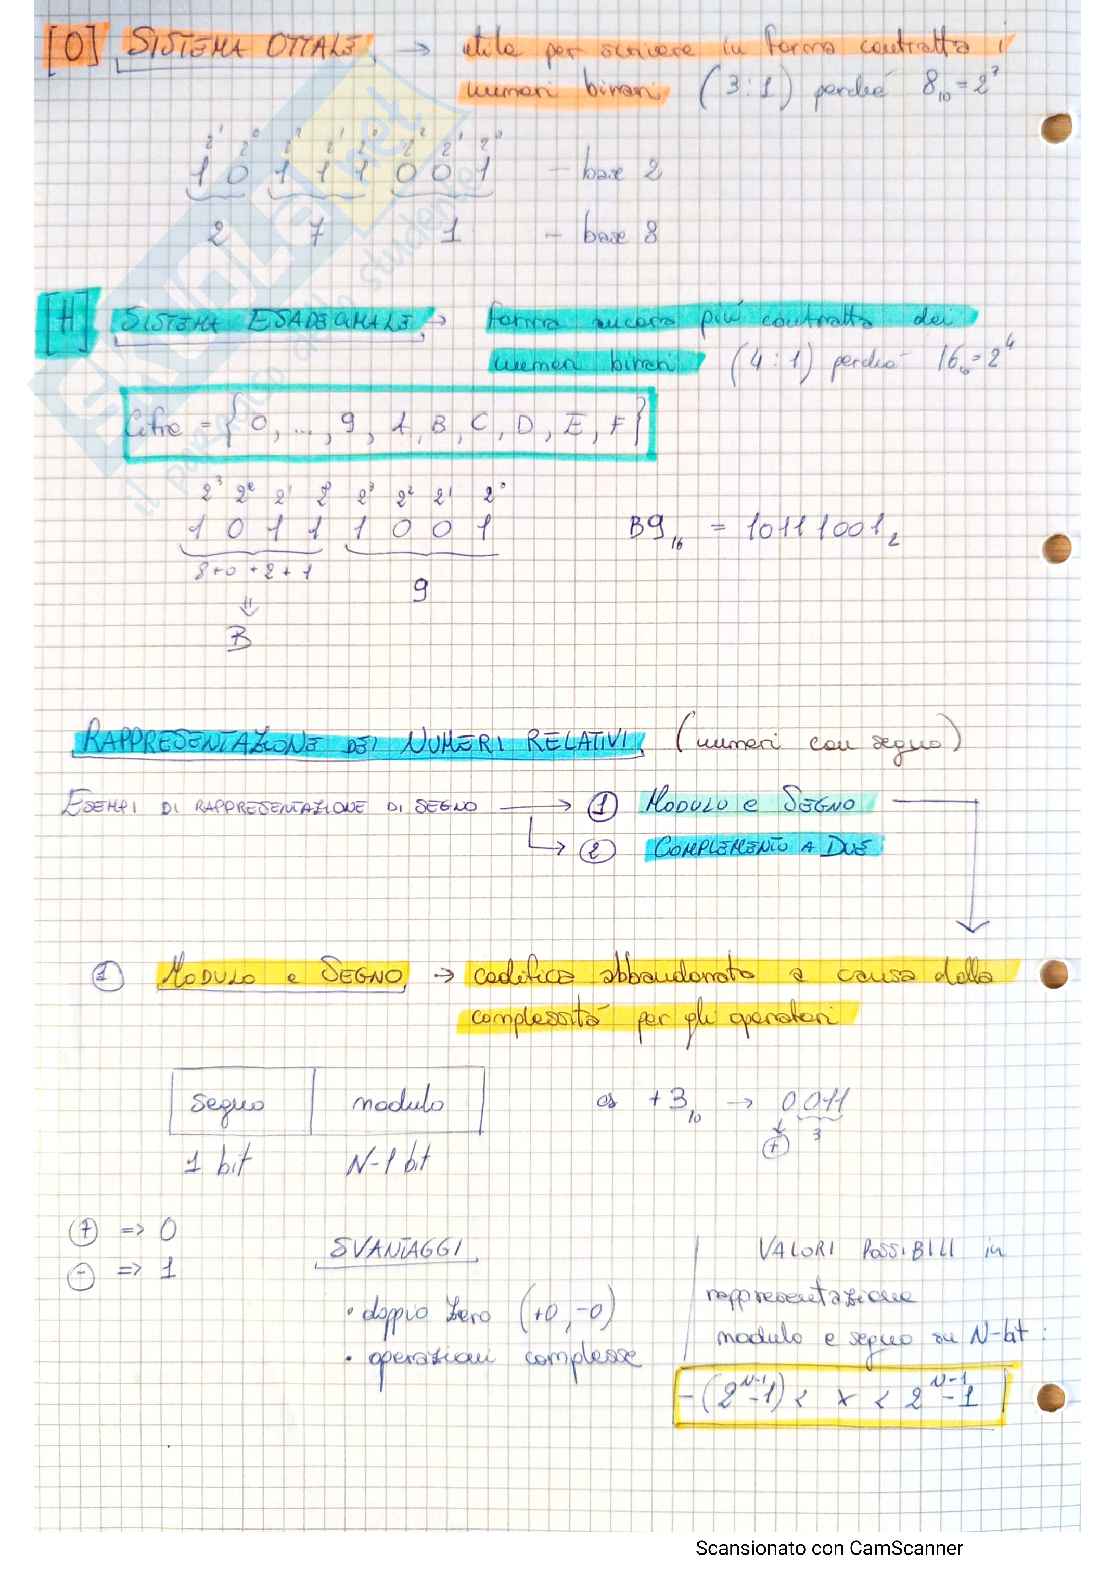 [O] SISTEMA OTTALE → utile per scrivere in forma contratta i
numeri binari (3:1) perché 8₁₀=2³
2¹ 2⁰ 2² 2¹ 2⁰ 2² 2¹ 2⁰
1 0 1 1 1 0 0 1 – base 2
2 7 1 – base 8
[H] SISTEMA ESADECIMALE → forma ancora più contratta dei
numeri binari (4:1) perché 16₁₀=2⁴
Cifre = {0, ..., 9, A, B, C, D, E, F}
2³ 2² 2¹ 2⁰ 2³ 2² 2¹ 2⁰
1 0 1 1 1 0 0 1 B9₁₆ = 10111001₂
8+0+2+1 9
⇓
B
RAPPRESENTAZIONE DEI NUMERI RELATIVI (numeri con segno)
ESEMPI DI RAPPRESENTAZIONE DI SEGNO → ① MODULO e SEGNO
→ ② COMPLEMENTO A DUE
① MODULO e SEGNO → codifica abbandonata a causa della
complessità per gli operatori
segno modulo es +3₁₀ → 0 011
+ 3
1 bit N-1 bit
+ => 0
- => 1
SVANTAGGI
• doppio zero (+0, -0)
• operazioni complesse
VALORI POSSIBILI in
rappresentazione
modulo e segno su N-bit:
-(2^(N-1)-1) < x < 2^(N-1)-1
SKUOLA.net
il paradiso dello studente
Scansionato con CamScanner